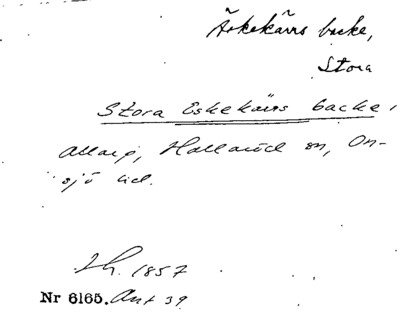 Äskekärrs backe,
Stora
Stora Eskekärrs backe,
Allarp, Hallaröd sn, On-
sjö hd.
Lh. 1857
Nr 6165. Ant 39